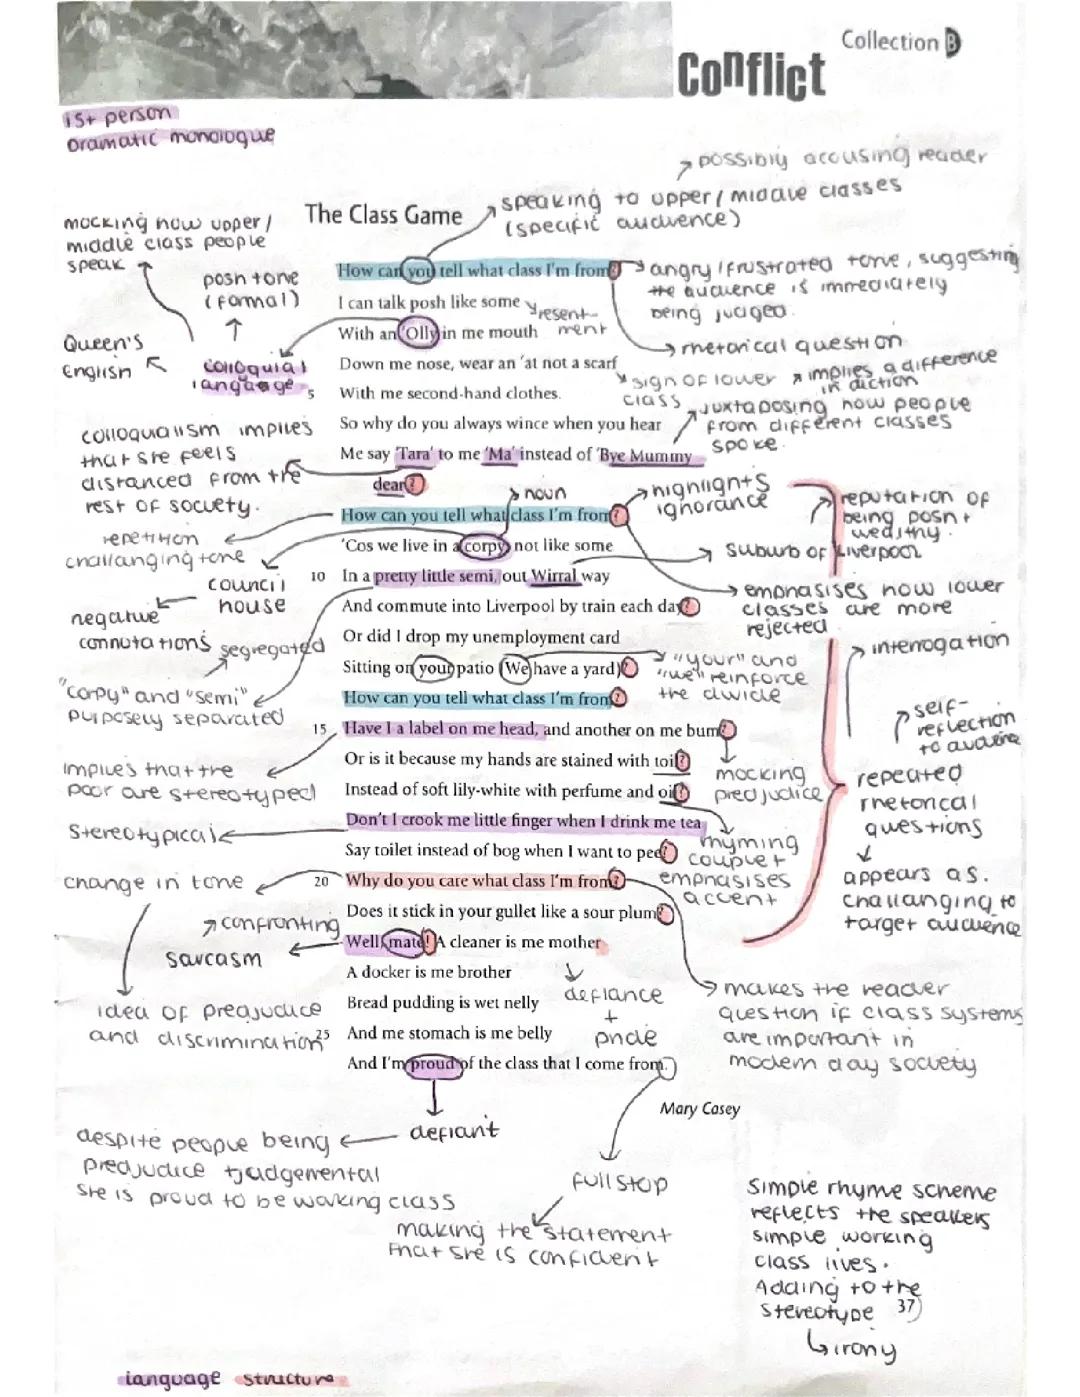 Collection B
Conflict
1st person
Dramatic monologue
possibly accusing reader
speaking to upper/middle classes
(specific audience)
The Class Game
mocking how upper/
middle class people
speak
posh tone
(formal)
Queen's
English
colloquial
language
How can you tell what class I'm from?
angry/frustrated tone, suggesting
the audience is immediately
being judged.
I can talk posh like some
resent-
ment
With an 'Olly in me mouth
rhetorical question
Down me nose, wear an 'at not a scarf
sign of lower
class
implies a difference
in diction
5
With me second-hand clothes.
juxtaposing how people
from different classes
spoke.
So why do you always wince when you hear
Me say 'Tara' to me 'Ma' instead of 'Bye Mummy
dear'?
colloqualism implies
that she feels
distanced from the
rest of society.
noun
highlights
ignorance
reputation of
being posh +
wealthy.
How can you tell what class I'm from?
repetition
challanging tone
'Cos we live in a corpy, not like some
suburb of Liverpool
council
house
negative
connotations
10
In a pretty little semi, out Wirral way
emphasises how lower
classes are more
rejected
And commute into Liverpool by train each day?
segregated
Or did I drop my unemployment card
interrogation
Sitting on your patio (We have a yard)?
"your" and
"we" reinforce
the divide
"corpy" and "semi"
purposely separated
How can you tell what class I'm from?
self-
reflection
to audience
15
Have I a label on me head, and another on me bum?
implies that the
poor are stereotyped
Or is it because my hands are stained with toil?
mocking
predjudice
repeated
rhetorical
questions
appears as.
challanging to
target audience
Instead of soft lily-white with perfume and oil?
Don't I crook me little finger when I drink me tea
stereotypical
rhyming
couplet
emphasises
accent
Say toilet instead of bog when I want to pee?
change in tone
20
Why do you care what class I'm from?
Does it stick in your gullet like a sour plum?
confronting
sarcasm
Well, mate! A cleaner is me mother
A docker is me brother
defiance
+
pride
makes the reader
question if class systems
are important in
modern day society
Bread pudding is wet nelly
idea of preajudice
and discrimination
25
And me stomach is me belly
And I'm proud of the class that I come from.
Mary Casey
defiant
despite people being
predjudice + judgemental
she is proud to be working class
full stop
making the statement
that she is confident
Simple rhyme scheme
reflects the speakers
simple working
class lives.
Adding to the
stereotype
37
irony
language structure